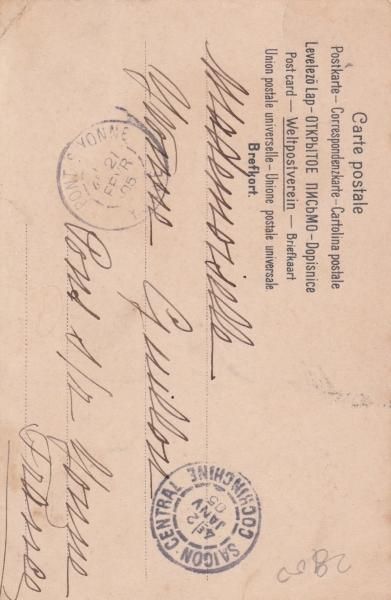 Carte postale
Postkarte — Correspondenzkarte — Cartolina postale
Levelező Lap — ОТКРЫТОЕ ПИСЬМО — Dopisnice
Post card — Weltpostverein — Briefkaart
Union postale universelle — Unione postale universale
Brefkort.
Mademoiselle
Yvonne Guillon
Pont s/ Yonne
France
PONT-S-YONNE
2
FEVR
05
SAIGON CENTRAL
COCHINCHINE
2
JANV
05